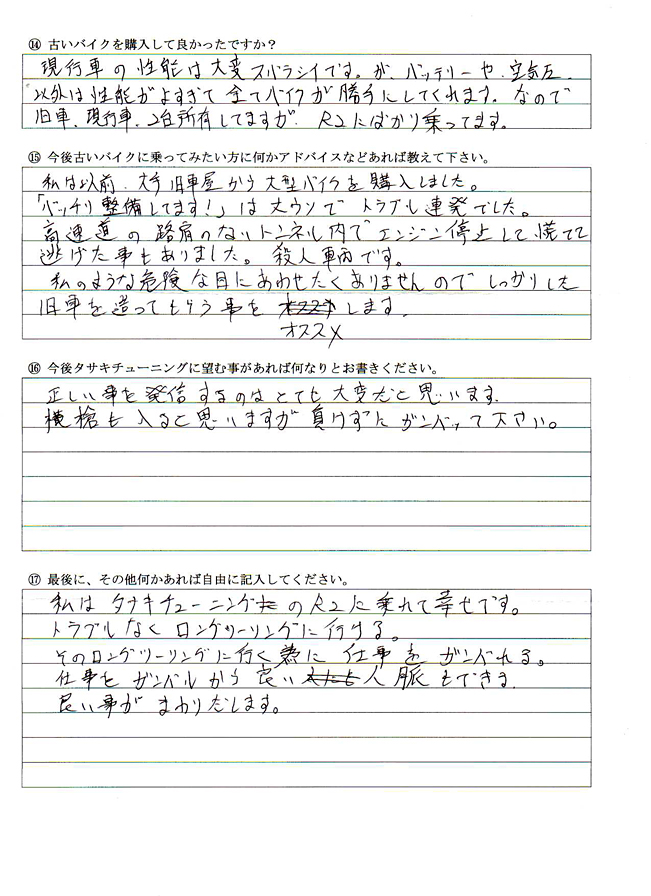 ⑭ 古いバイクを購入して良かったですか？
現行車の性能は大変スバラシイです。が、バッテリーや、空気圧、
以外は性能がよすぎて全てバイクが勝手にしてくれます。なので
旧車、現行車、2台所有してますが、R2にばかり乗ってます。
⑮ 今後古いバイクに乗ってみたい方に何かアドバイスなどあれば教えて下さい。
私は以前、大手旧車屋から大型バイクを購入しました。
「バッチリ整備してます!」は大ウソでトラブル連発でした。
高速道の路肩のないトンネル内でエンジン停止して慌てて
逃げた事もありました。殺人車両です。
私のような危険な目にあわせたくありませんのでしっかりした
旧車を造ってもらう事を オススメ します。
オススメ
⑯ 今後タサキチューニングに望む事があれば何なりとお書きください。
正しい事を発信するのはとても大変だと思います。
横槍も入ると思いますが負けずにガンバッて下さい。
⑰ 最後に、その他何かあれば自由に記入してください。
私はタサキチューニングのR2に乗れて幸せです。
トラブルなくロングツーリングに行ける。
そのロングツーリングに行く為に仕事をガンバれる。
仕事をガンバルから良い人脈もできる。
良い事がまわりだします。